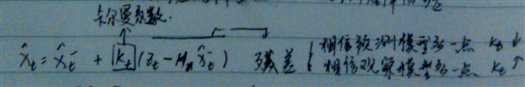 卡尔曼系数.
x̂ₜ = x̂ₜ⁻ + Kₜ (zₜ - Hₙ x̂ₜ⁻) 残差 { 相信预测模型多一点 Kₜ↓
相信观察模型多一点 Kₜ↑